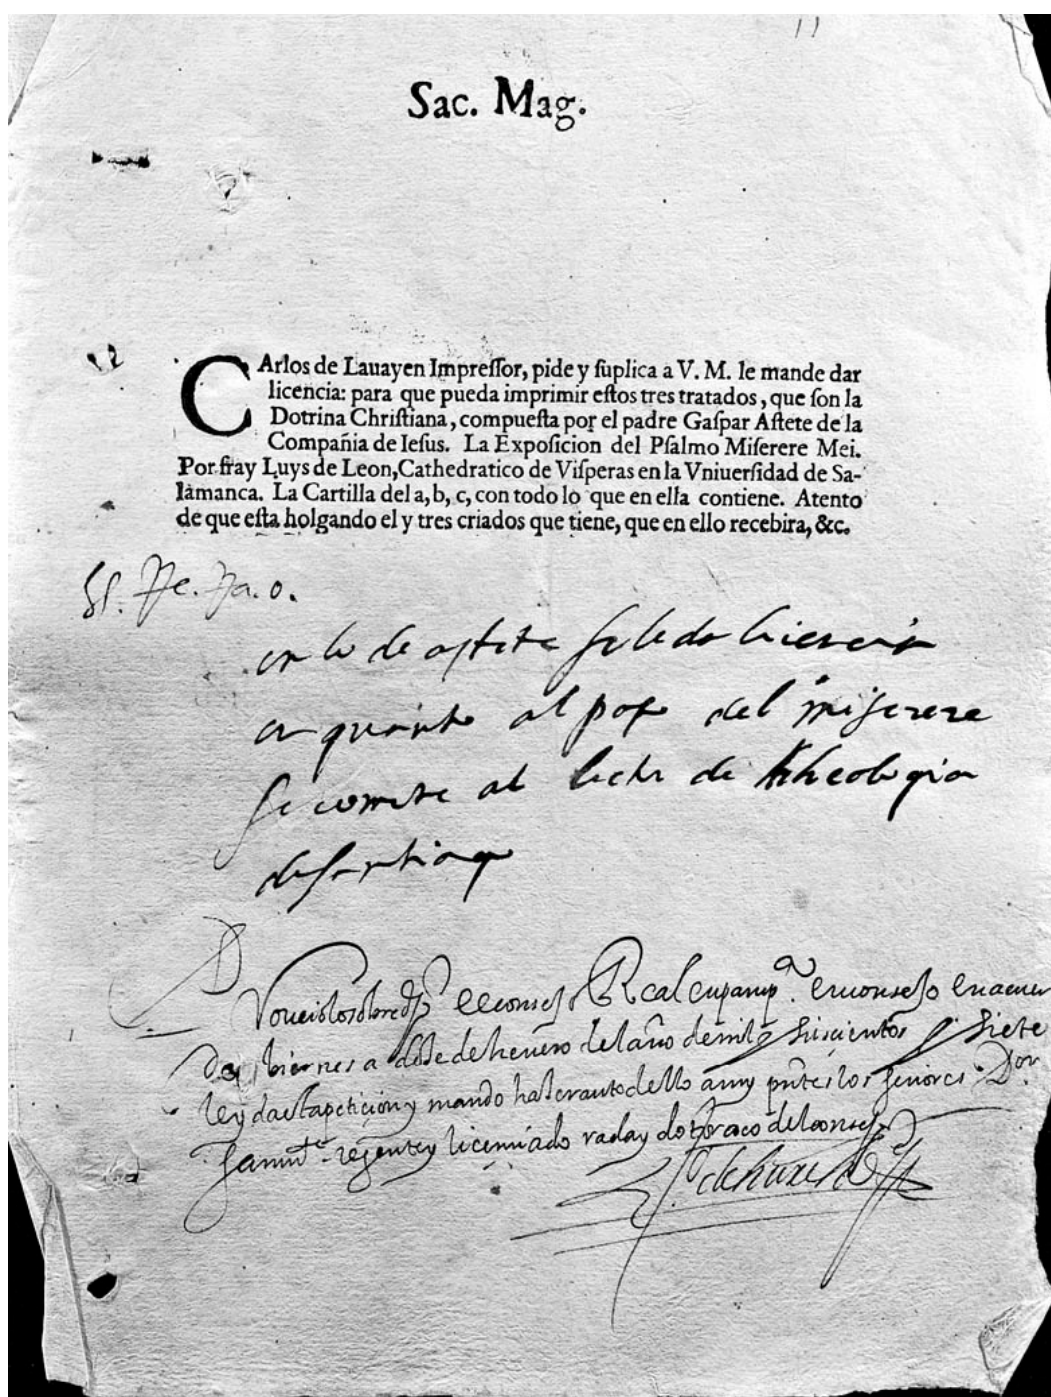 11
Sac. Mag.
CArlos de Lauayen Impreſſor, pide y ſuplica a V. M. le mande dar
licencia: para que pueda imprimir eſtos tres tratados, que ſon la
Dotrina Chriſtiana, compueſta por el padre Gaſpar Aſtete de la
Compañia de Ieſus. La Expoſicion del Pſalmo Miſerere Mei.
Por fray Luys de Leon, Cathedratico de Viſperas en la Vniuerſidad de Sa-
lamanca. La Cartilla del a, b, c, con todo lo que en ella contiene. Atento
de que eſta holgando el y tres criados que tiene, que en ello recebira, &c.
en lo de astete se le da licencia
en quanto al del miserere
se comete al de theologia
de
consejo Real en consejo en
biernes a de henero del año de mil y seiscientos y siete
leyda esta peticion y mando hazer auto dello a my pntes los señores Don
regente y licenciado rada y dotor del consejo